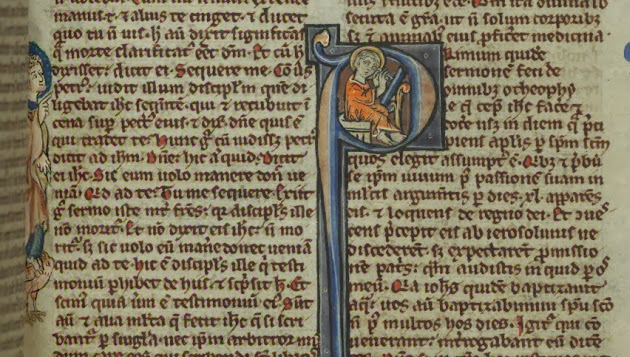 manus t̄. & alius te cinget. & ducet
quo tu ñ uis. h̄ aū dixit significās
q̄ morte clarificat᷑ eēt dm̄. Et cū h̄
dixisset: dicit ei. Sequere me. Cōūs
petr᷒ uidit illum discipl̄m quē di
ligebat ihc seq̄ntē. qui & recubuit ī
cena sup̄ pect᷒ ei᷒. & dix̄. dn̄e quis ē
qui tradet te. Hunc g̊ cū uidiss; petr᷒
dicit ad ihm̄. Dn̄e: hic ā quid. Dicit
ei ihc. Sic eum uolo manere don̄ ue
niā. Qd̄ ad te. Tu me sequere. Exiit
g̊ sermo iste int᷑ fr̄es: q̄ discipl᷒ ille
nō morit᷑. Et nō dixit ei ihc n̄ mo
rit᷑. s; sic uolo eū manē donec ueniā
quid ad te. hic ē discipl᷒ ille q̄ testi
moniū phibet de his. & scps̄it h̄. Et
scim᷒ quia uerū ē testimoniū ei᷒. Sūt
aū & alia mlta q̄ fecit ihc q̄ si scri
bant᷑ p̄ singla. nec ipm̄ arbitror mū
secuta ē gr̄a. ut n̄ solum corporibꝫ
s; & animabꝫ ei᷒ p̄ficet medicina.
Primum quidē
sermonē feci de
omnibꝫ o theophy
le q̄ cep̄ ihc face &
docē usꝫ in diem q̄ p̄ci
piens apl̄is p̄ sp̄m sc̄m
quos elegit assumpt᷒ ē. Qībꝫ & p̄bū
se ip̄m uiuum p᷒ passionē suam in
mltis argum̄tis p̄ dies. xl. apparēs
eis. & loquens de regno dei. Et cūes
cens p̄cepit eis ab ierosolimis ne
discederent. s; expectarēt p̄missio
nē pat᷑s: quā audistis inquit p̄ os
meū. Qa iohs quidē baptizauit
aq̄. uos aū baptizabimini sp̄u sc̄o
n̄ p᷒ multos hos dies. Igit᷑ qui cō
uenerant: int᷑rogabant eū dicē